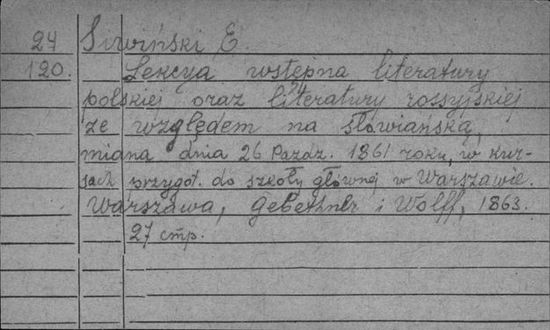 24 Siwiński E.
120. Lekcya wstępna literatury
polskiej oraz literatury rossyjskiej
ze względem na słowiańską,
miana dnia 26 Pazdz. 1861 roku, w kur-
sach przygot. do szkoły głównej w Warszawie.
Warszawa, Gebethner i Wolff, 1863.
27 стр.